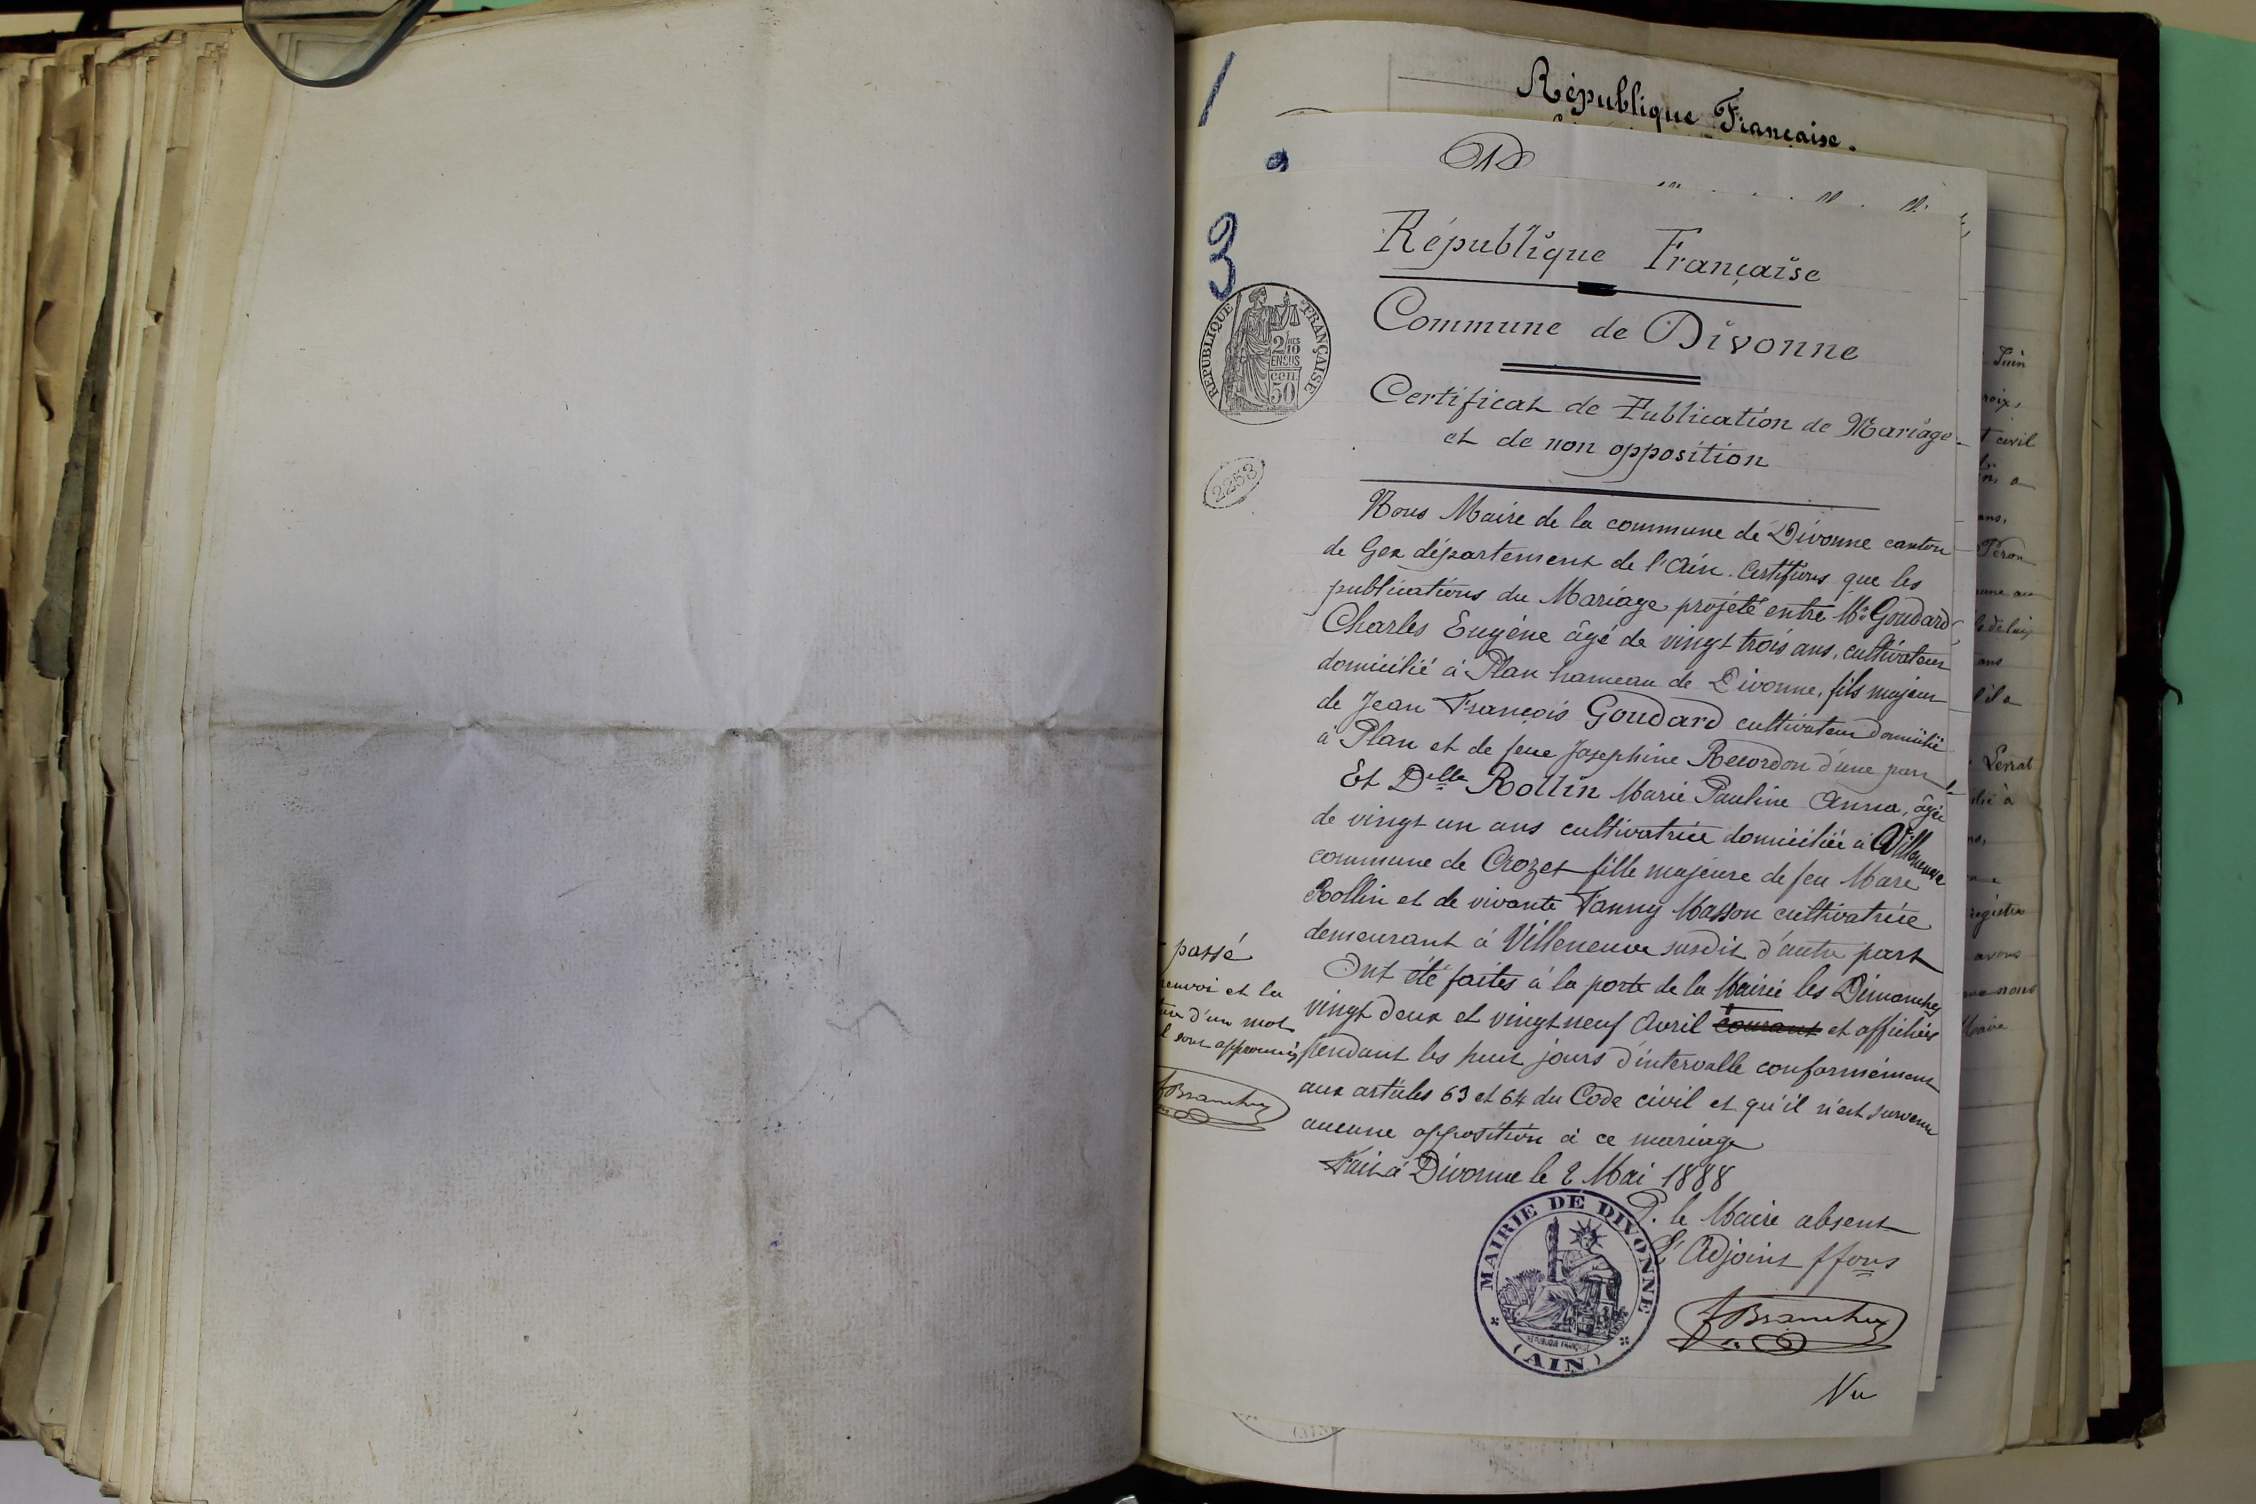 1
République Française.
3
République Française
Commune de Divonne
Certificat de Publication de Mariage
et de non opposition
RÉPUBLIQUE FRANÇAISE
2/10
EN SUS
50
2253
Nous Maire de la commune de Divonne canton
de Gex département de l'Ain. Certifions que les
publications du Mariage projeté entre Mr Goudard
Charles Eugène âgé de vingt trois ans, cultivateur
domicilié à Plan hameau de Divonne, fils majeur
de Jean François Goudard cultivateur domicilié
à Plan et de feue Josephine Recordon d'une part
Et Delle Rollin Marie Pauline Anna, âgée
de vingt un ans cultivatrice domiciliée à Villeneuve
commune de Crozet fille majeure de feu Marc
Rollin et de vivante Fanny Masson cultivatrice
demeurant à Villeneuve susdit d'autre part
Ont été faites à la porte de la Mairie les Dimanches
vingt deux et vingt neuf Avril courant et affichées
pendant les huit jours d'intervalle conformément
aux articles 63 et 64 du Code civil et qu'il n'est survenu
aucune opposition à ce mariage
Fait à Divonne le 2 Mai 1888
P. le Maire absent
L'Adjoint ffons
MAIRIE DE DIVONNE
(AIN)
Vu
passé
renvoi et la
d'un mot
sont approuvés
Juin
civil
Péron
registre
avons
Maire